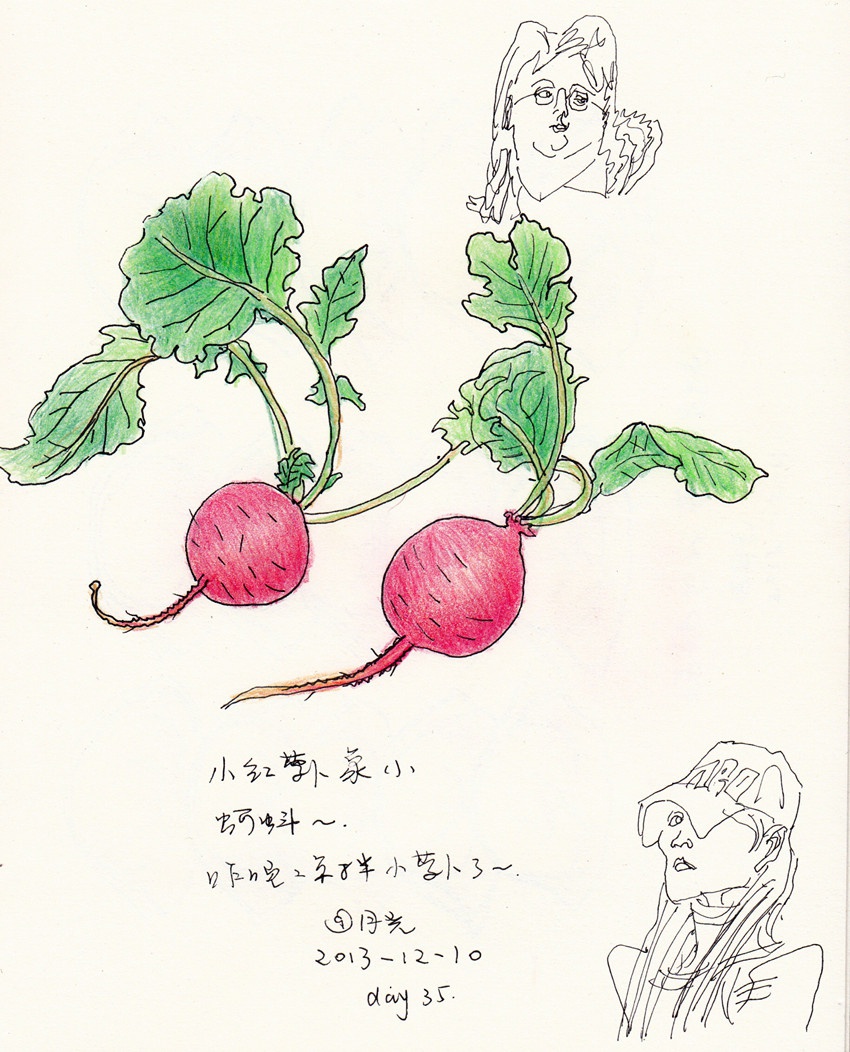 小红萝卜象小
蝌蚪～.
昨晚凉拌小萝卜了～.
@月光
2013-12-10
day 35.